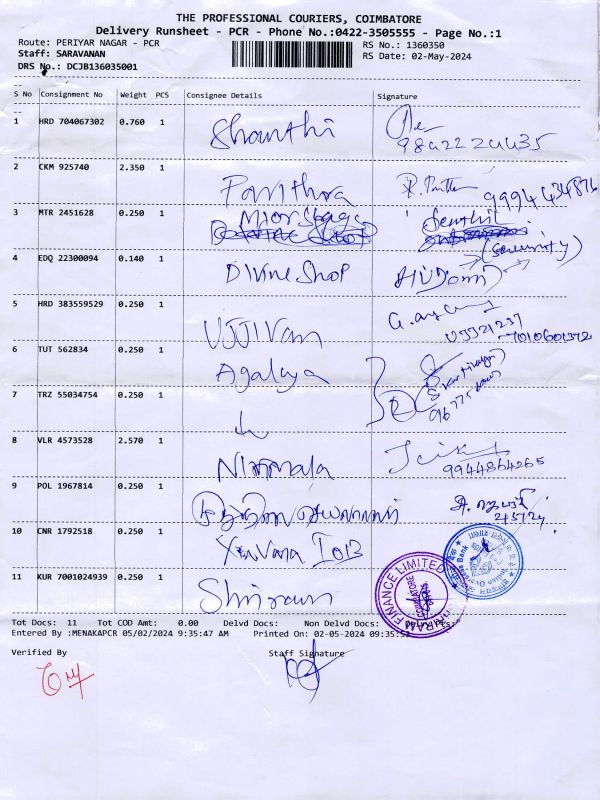 THE PROFESSIONAL COURIERS, COIMBATORE
Delivery Runsheet - PCR - Phone No.:0422-3505555 - Page No.:1
Route: PERIYAR NAGAR - PCR
RS No.: 1360350
Staff: SARAVANAN
RS Date: 02-May-2024
DRS No.: DCJB136035001
S No Consignment No Weight PCS Consignee Details Signature
1 HRD 704067302 0.760 1 Shanthi
2 CKM 925740 2.350 1 9994434876
3 MTR 2451628 0.250 1 Senthil
(Security)
4 EDQ 22300094 0.140 1 Divine Shop
5 HRD 383559529 0.250 1 UJJIVan
7010601372
6 TUT 562834 0.250 1 Agalaya
7 TRZ 55034754 0.250 1
8 VLR 4573528 2.570 1 Nirmala
9944864265
9 POL 1967814 0.250 1
2/5/24
10 CNR 1792518 0.250 1 IOB
11 KUR 7001024939 0.250 1 Shriram
Tot Docs: 11 Tot COD Amt: 0.00 Delvd Docs: Non Delvd Docs:
Entered By :MENAKAPCR 05/02/2024 9:35:47 AM Printed On: 02-05-2024 09:35:51
Verified By Staff Signature